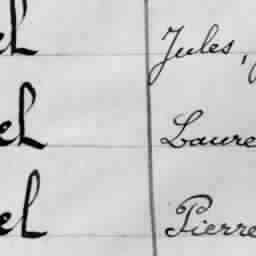 el Jules,
el Laure
el Pierre